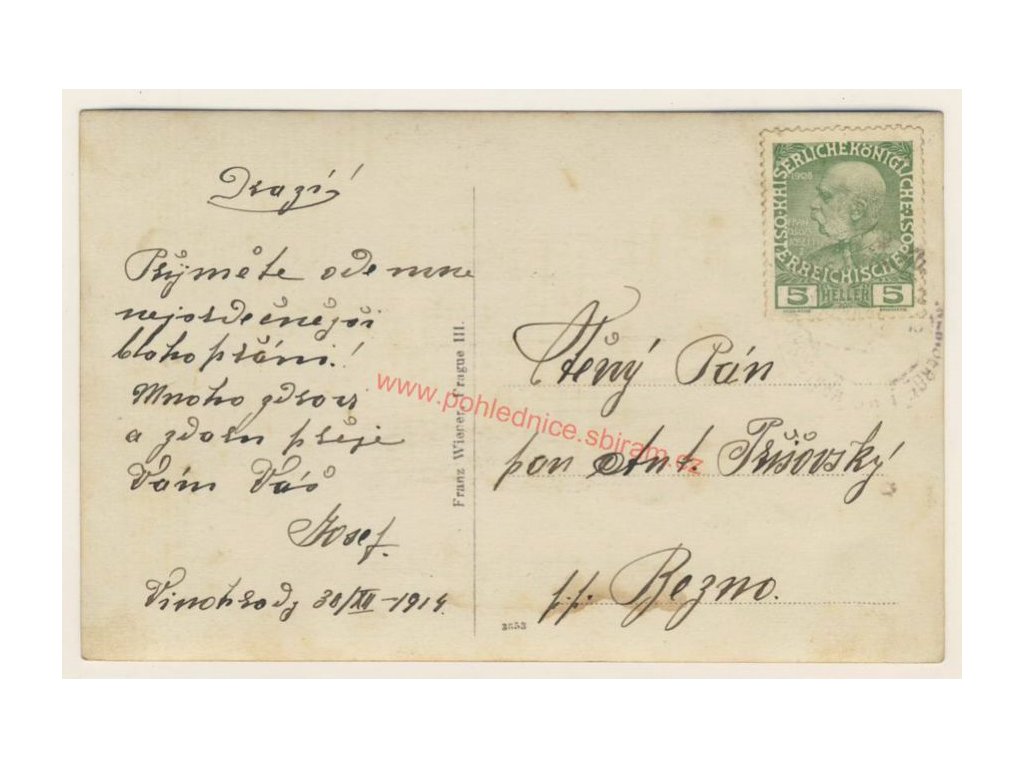 Drazí
Přijměte ode mne
nejsrdečnější
blahopřání!
Mnoho zdraví
a zdaru přeje
Vám Váš
Josef.
Vinohrady 30/XII-1914
Franz Wiener, Prague III.
www.pohlednice.sbiram.cz
K·KAISERLICHEKÖNIGLICHE·ÖSTERREICHISCHE·POST
1908
5 HELLER 5
Ctěný Pán
pan Ant. Prišovský
p.p. Bezno.